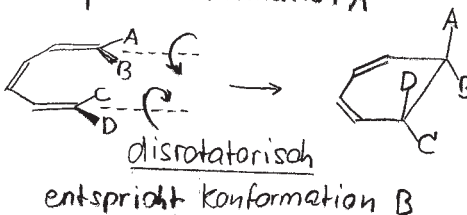 A
A
B
B
D
C
D
C
disrotatorisch
entspricht Konformation B